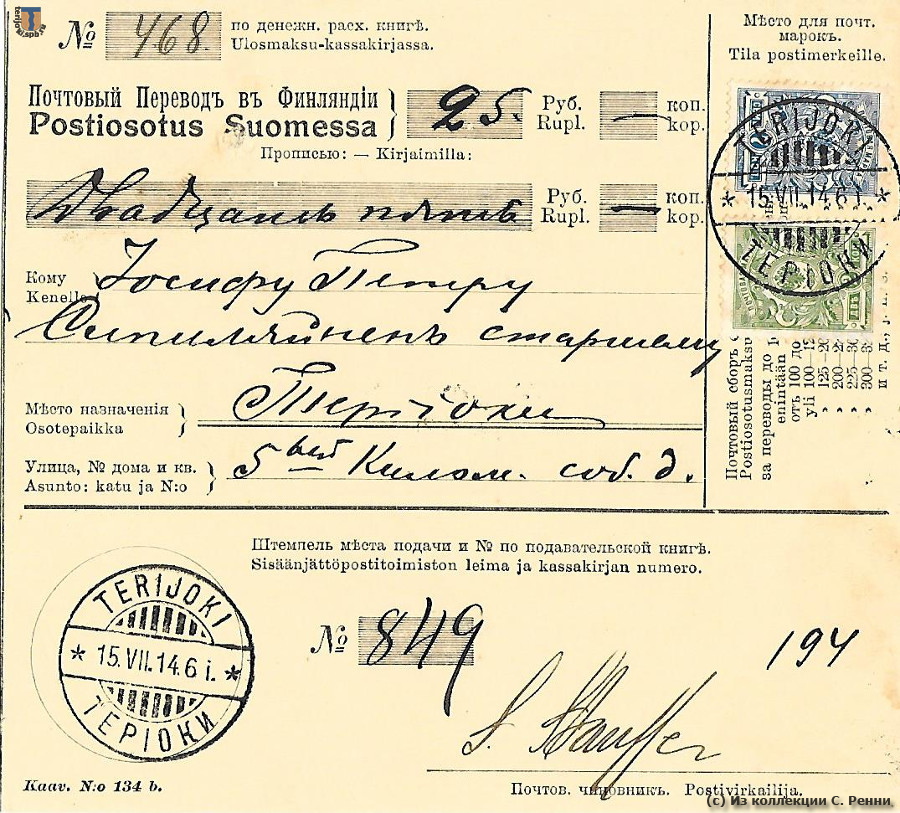 terijoki.spb.ru
№ 468. по денежн. расх. книгѣ.
Ulosmaksu-kassakirjassa.
Мѣсто для почт.
марокъ.
Tila postimerkeille.
Почтовый Переводъ въ Финляндіи
Postiosotus Suomessa
25. Руб. — коп.
Rupl. kop.
Прописью: — Kirjaimilla:
Двадцать пять Руб. — коп.
Rupl. kop.
Кому Іосифу Петру
Kenelle
Сипиляйненъ старшему
Мѣсто назначенія Теріоки
Osotepaikka
Улица, № дома и кв. 5 ый Килом. соб. д.
Asunto: katu ja N:o
TERIJOKI
* 15.VII.14.6 i. *
ТЕРІОКИ
Почтовый сборъ
Postiosotusmaksu
за переводы до
enintään
отъ 100 до
yli 100—
» 125—
» 200—
» 225—
» 300—
и т. д., j. n. e.
Штемпель мѣста подачи и № по подавательской книгѣ.
Sisäänjättöpostitoimiston leima ja kassakirjan numero.
TERIJOKI
* 15.VII.14.6 i. *
ТЕРІОКИ
№ 849
194
Почтов. чиновникъ. Postivirkailija.
Kaav. N:o 134 b.
(c) Из коллекции С. Ренни.